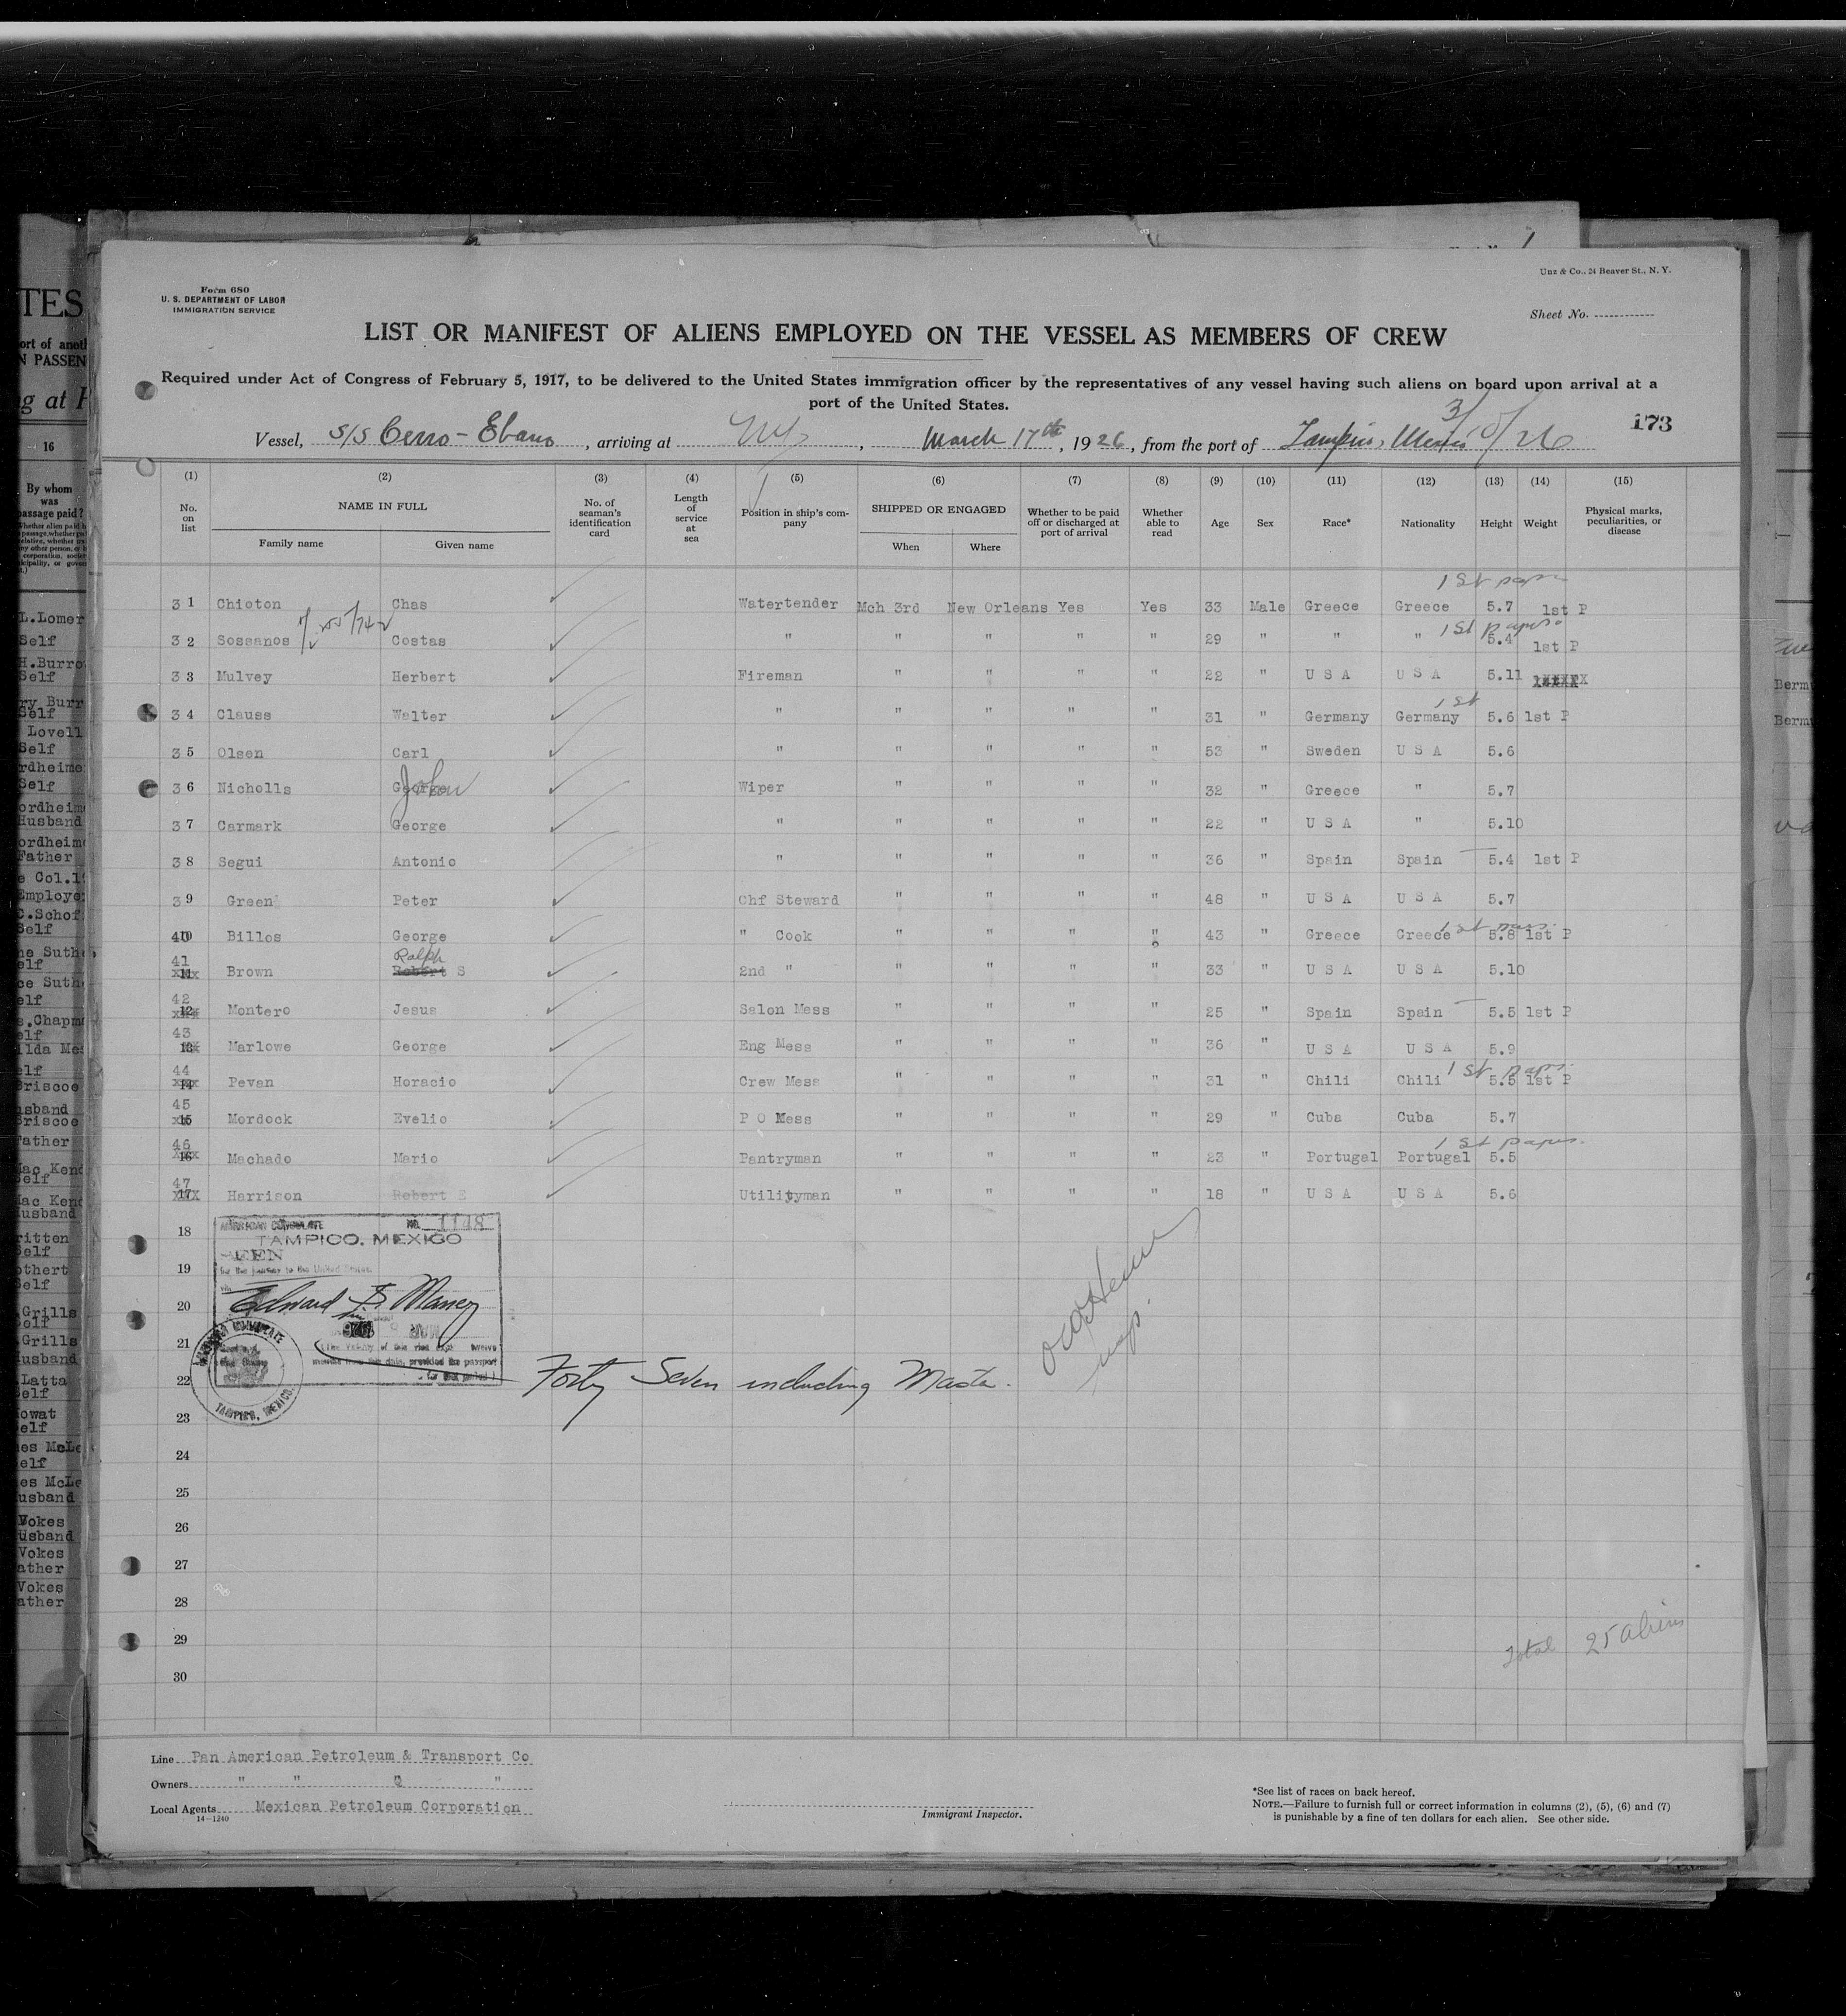 Unz & Co., 24 Beaver St., N. Y.
Form 680
U. S. DEPARTMENT OF LABOR
IMMIGRATION SERVICE
Sheet No.
LIST OR MANIFEST OF ALIENS EMPLOYED ON THE VESSEL AS MEMBERS OF CREW
Required under Act of Congress of February 5, 1917, to be delivered to the United States immigration officer by the representatives of any vessel having such aliens on board upon arrival at a
port of the United States.
173
Vessel, S/S Cerro-Ebano, arriving at NY, March 17th, 1926, from the port of Tampico, Mexico
(1) (2) (3) (4) (5) (6) (7) (8) (9) (10) (11) (12) (13) (14) (15)
No. on list NAME IN FULL Family name Given name No. of seaman's identification card Length of service at sea Position in ship's company SHIPPED OR ENGAGED When Where Whether to be paid off or discharged at port of arrival Whether able to read Age Sex Race* Nationality Height Weight Physical marks, peculiarities, or disease
1st paper
31 Chioton Chas Watertender Mch 3rd New Orleans Yes Yes 33 Male Greece Greece 5.7 1st P
1st papers
32 Sossanos Costas " " " " " 29 " " " 5.4 1st P
33 Mulvey Herbert Fireman " " " " 22 " U S A U S A 5.11
1st
34 Clauss Walter " " " " " 31 " Germany Germany 5.6 1st P
35 Olsen Carl " " " " " 53 " Sweden U S A 5.6
36 Nicholls George John Wiper " " " " 32 " Greece " 5.7
37 Carmark George " " " " " 22 " U S A " 5.10
38 Segui Antonio " " " " " 36 " Spain Spain 5.4 1st P
39 Green Peter Chf Steward " " " " 48 " U S A U S A 5.7
40 Billos George " Cook " " " " 43 " Greece Greece 5.8 1st P
41 Brown Ralph Robert S 2nd " " " " " 33 " U S A U S A 5.10
42 Montero Jesus Salon Mess " " " " 25 " Spain Spain 5.5 1st P
43 Marlowe George Eng Mess " " " " 36 " U S A U S A 5.9
44 Pevan Horacio Crew Mess " " " " 31 " Chili Chili 1st paper 5.5 1st P
45 Mordock Evelio P O Mess " " " " 29 " Cuba Cuba 5.7
1st papers.
46 Machado Mario Pantryman " " " " 23 " Portugal Portugal 5.5
47 Harrison Robert E Utilityman " " " " 18 " U S A U S A 5.6
18
19
20
21
22
23
24
25
26
27
28
29
30
AMERICAN CONSULATE No. 1148
TAMPICO, MEXICO
SEEN
for the journey to the United States.
Edward S. Maney
TAMPICO, MEXICO.
Forty Seven including Master.
Total 25 aliens
Line Pan American Petroleum & Transport Co
Owners " " " "
Local Agents Mexican Petroleum Corporation
14-1240
Immigrant Inspector.
*See list of races on back hereof.
NOTE.—Failure to furnish full or correct information in columns (2), (5), (6) and (7)
is punishable by a fine of ten dollars for each alien. See other side.